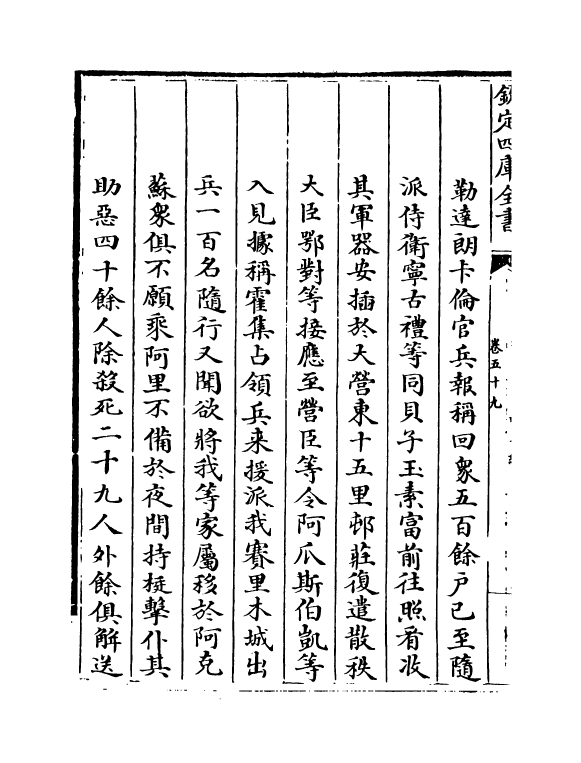 欽定四庫全書
卷五十九
勒達朗卡倫官兵報稱回衆五百餘戶已至隨
派侍衛寧古禮等同貝子玉素富前往照看收
其軍器安插於大營東十五里邨莊復遣散秩
大臣鄂對等接應至營臣等令阿瓜斯伯凱等
入見據稱霍集占領兵来援派我賽里木城出
兵一百名隨行又聞欲將我等家屬移於阿克
蘇衆俱不願乘阿里不備於夜間持梃擊仆其
助惡四十餘人除殺死二十九人外餘俱解送